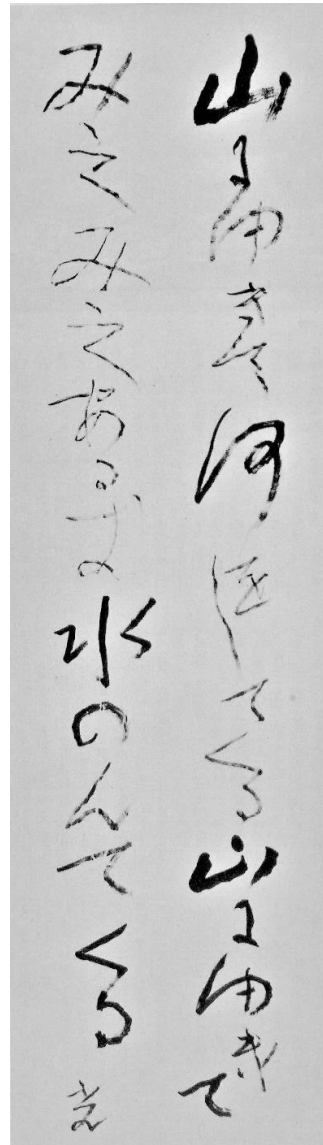 山にゆきて何をしてくる山にゆきて
みしみしあるき水のんてくる 光